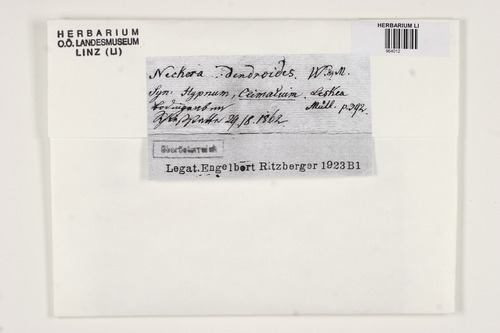 HERBARIUM
O.Ö. LANDESMUSEUM
LINZ (LI)
HERBARIUM LI
964012
Neckera dendroides. W. M.
Syn: Hypnum, Climatium. Leskea
Müll. p. 392.
29/8. 1862.
Oberösterreich
Legat. Engelbert Ritzberger 1923 B1